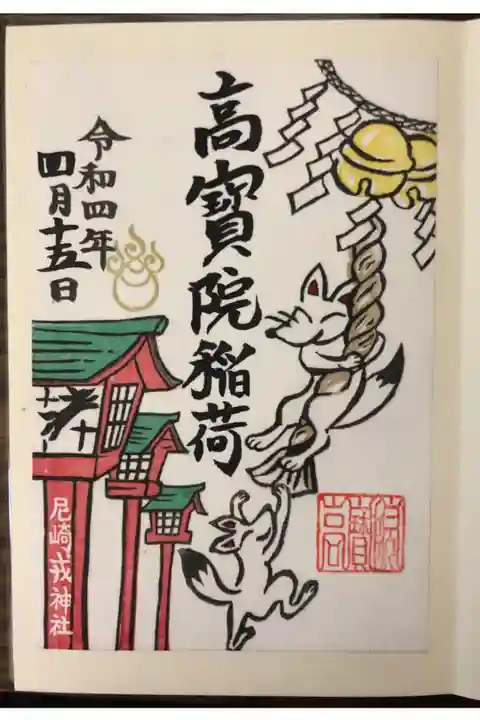 高寶院稲荷
令和四年
四月十五日
尼崎戎神社
高寶院